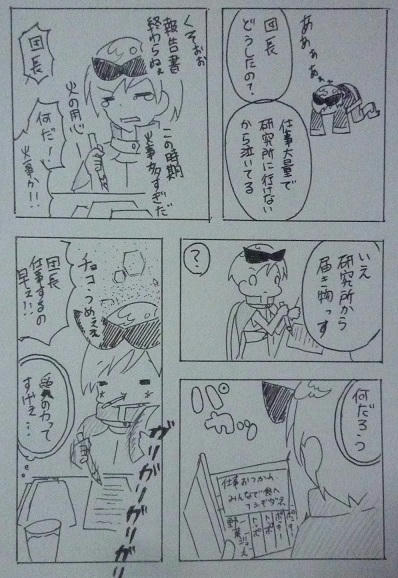 あぁぁぁぁ
団長
どうしたの?
仕事大量で
研究所に行けない
から泣いてる
くそぉぉ
報告書
終わらねぇ
この時期
火事多すぎだ
火の用心
団長
何だ!
火事か!!
いえ
研究所から
届き物っす
?
何だろう
パカッ
仕事おつかれ
みんなで食べ
野菜ジュース
チョコうめぇぇ
団長
仕事するの
早ぇ!!
愛の力って
すげぇ…
ガリガリガリガリガリ